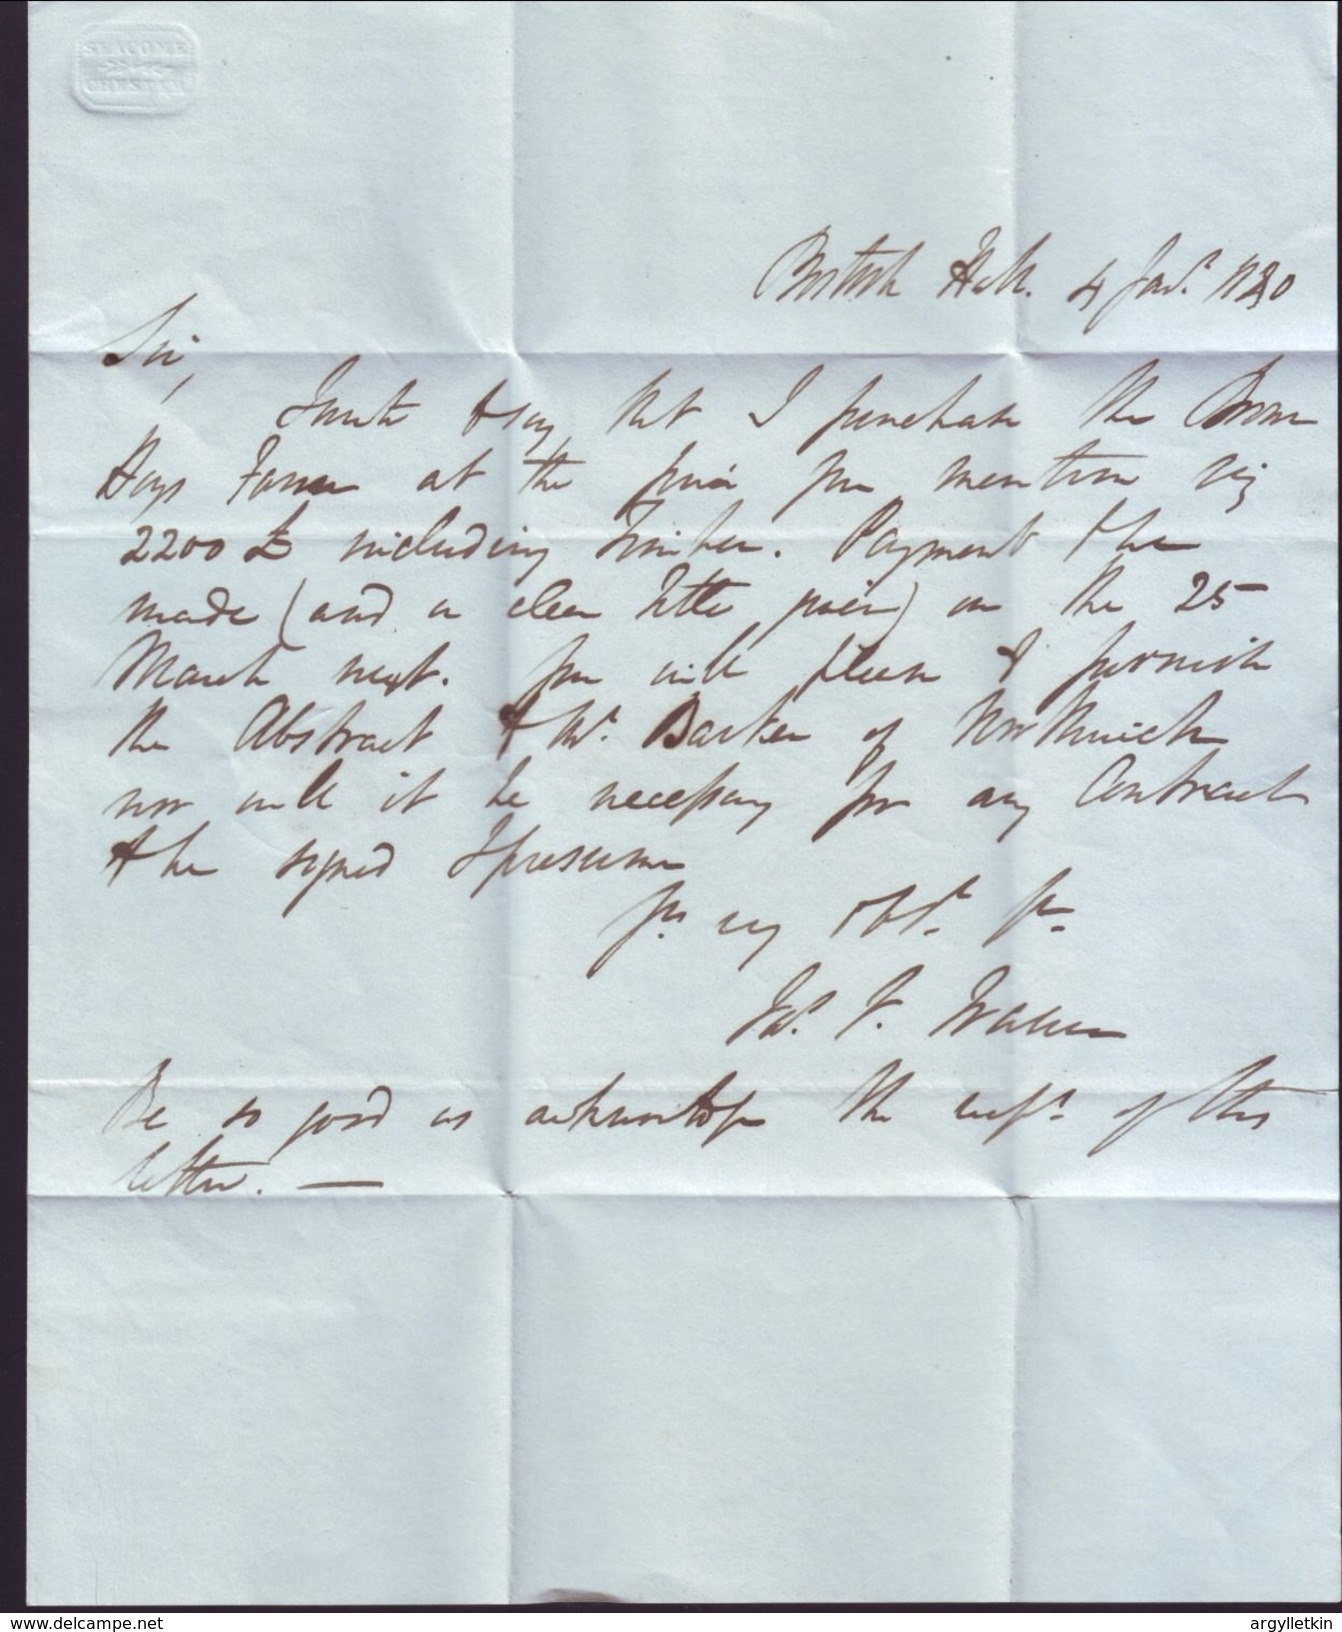 SEACOME
CHESTER
Hall. 4 Jany.
Sir,
I write to say that I purchase the
Hays Farm at the price you mention viz
2200 £ including Timber. Payment to be
made (and a clear title given) on the 25
March next. You will please to furnish
the Abstract to Mr. Barker of Northwich
nor will it be necessary for any Contract
to be signed I presume
Yr. my Obt. Sr.
Be so good as acknowledge the rect. of this
letter. —
delcampe.net
argylletkin